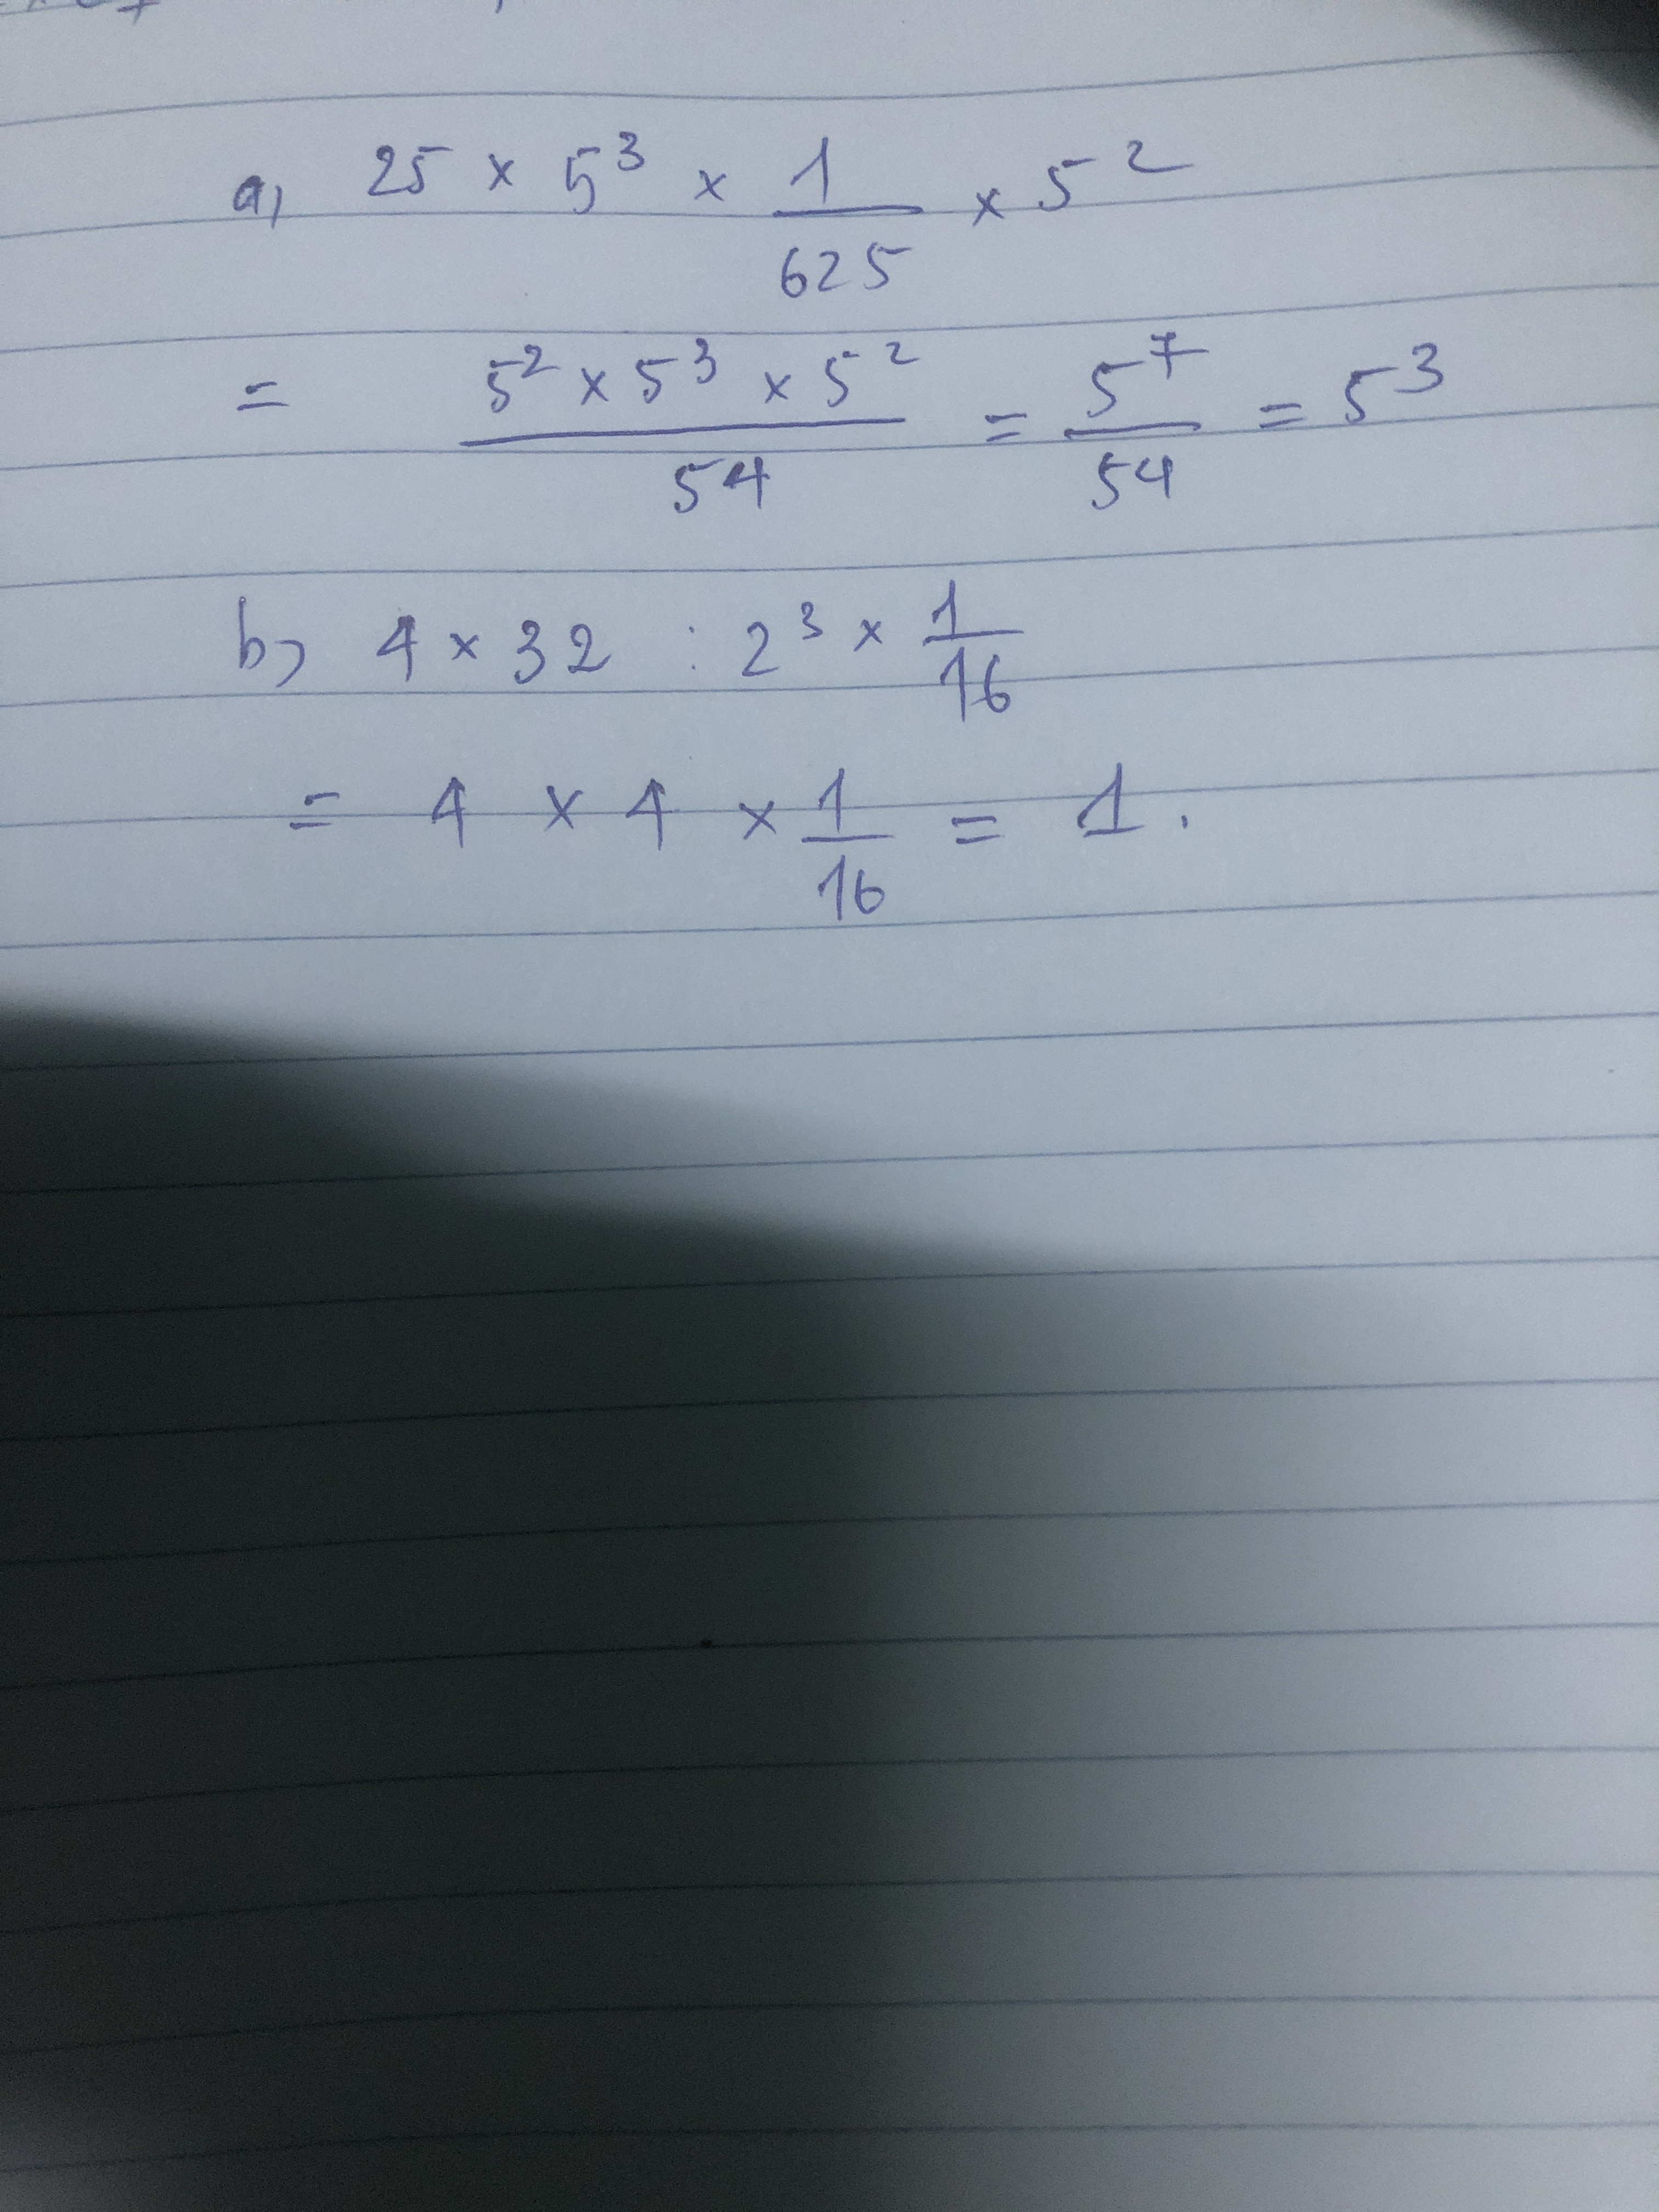 a, 25 × 5³ × 1/625 × 5²
= 5² × 5³ × 5² / 54 = 5⁷/54 = 5³
b) 4 × 32 : 2³ × 1/16
= 4 × 4 × 1/16 = 1.